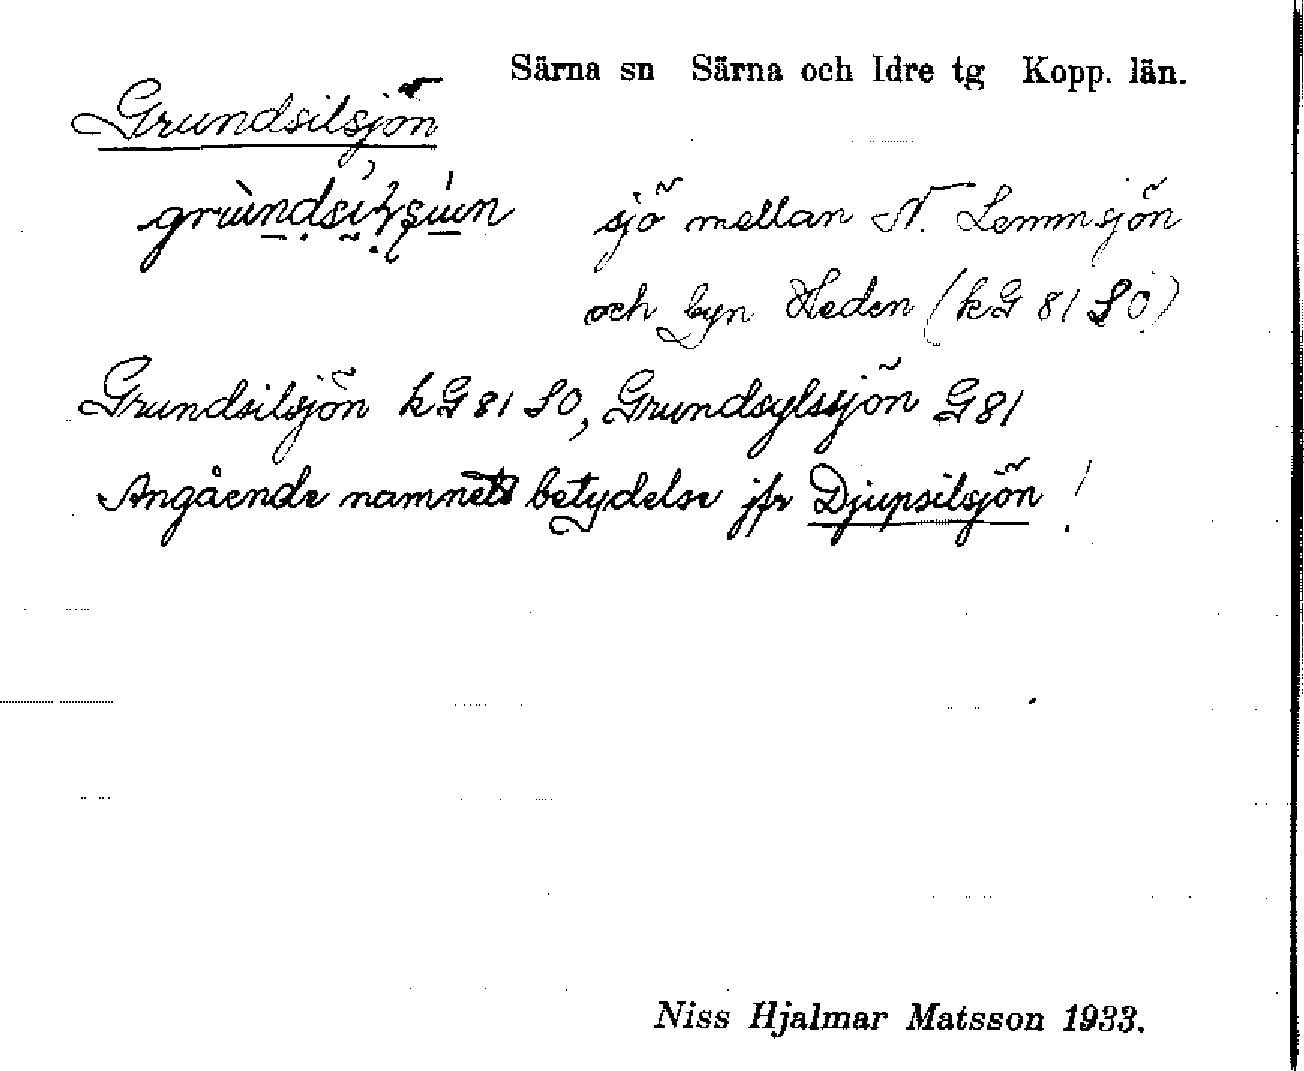 Särna sn Särna och Idre tg Kopp. län.
Grundsilsjön
sjö mellan N. Lemmsjön
och byn Heden (kG 81 SO)
Grundsilsjön kG 81 SO, Grundsylsjön G 81
Angående namnets betydelse jfr Djupsilsjön!
Niss Hjalmar Matsson 1933.